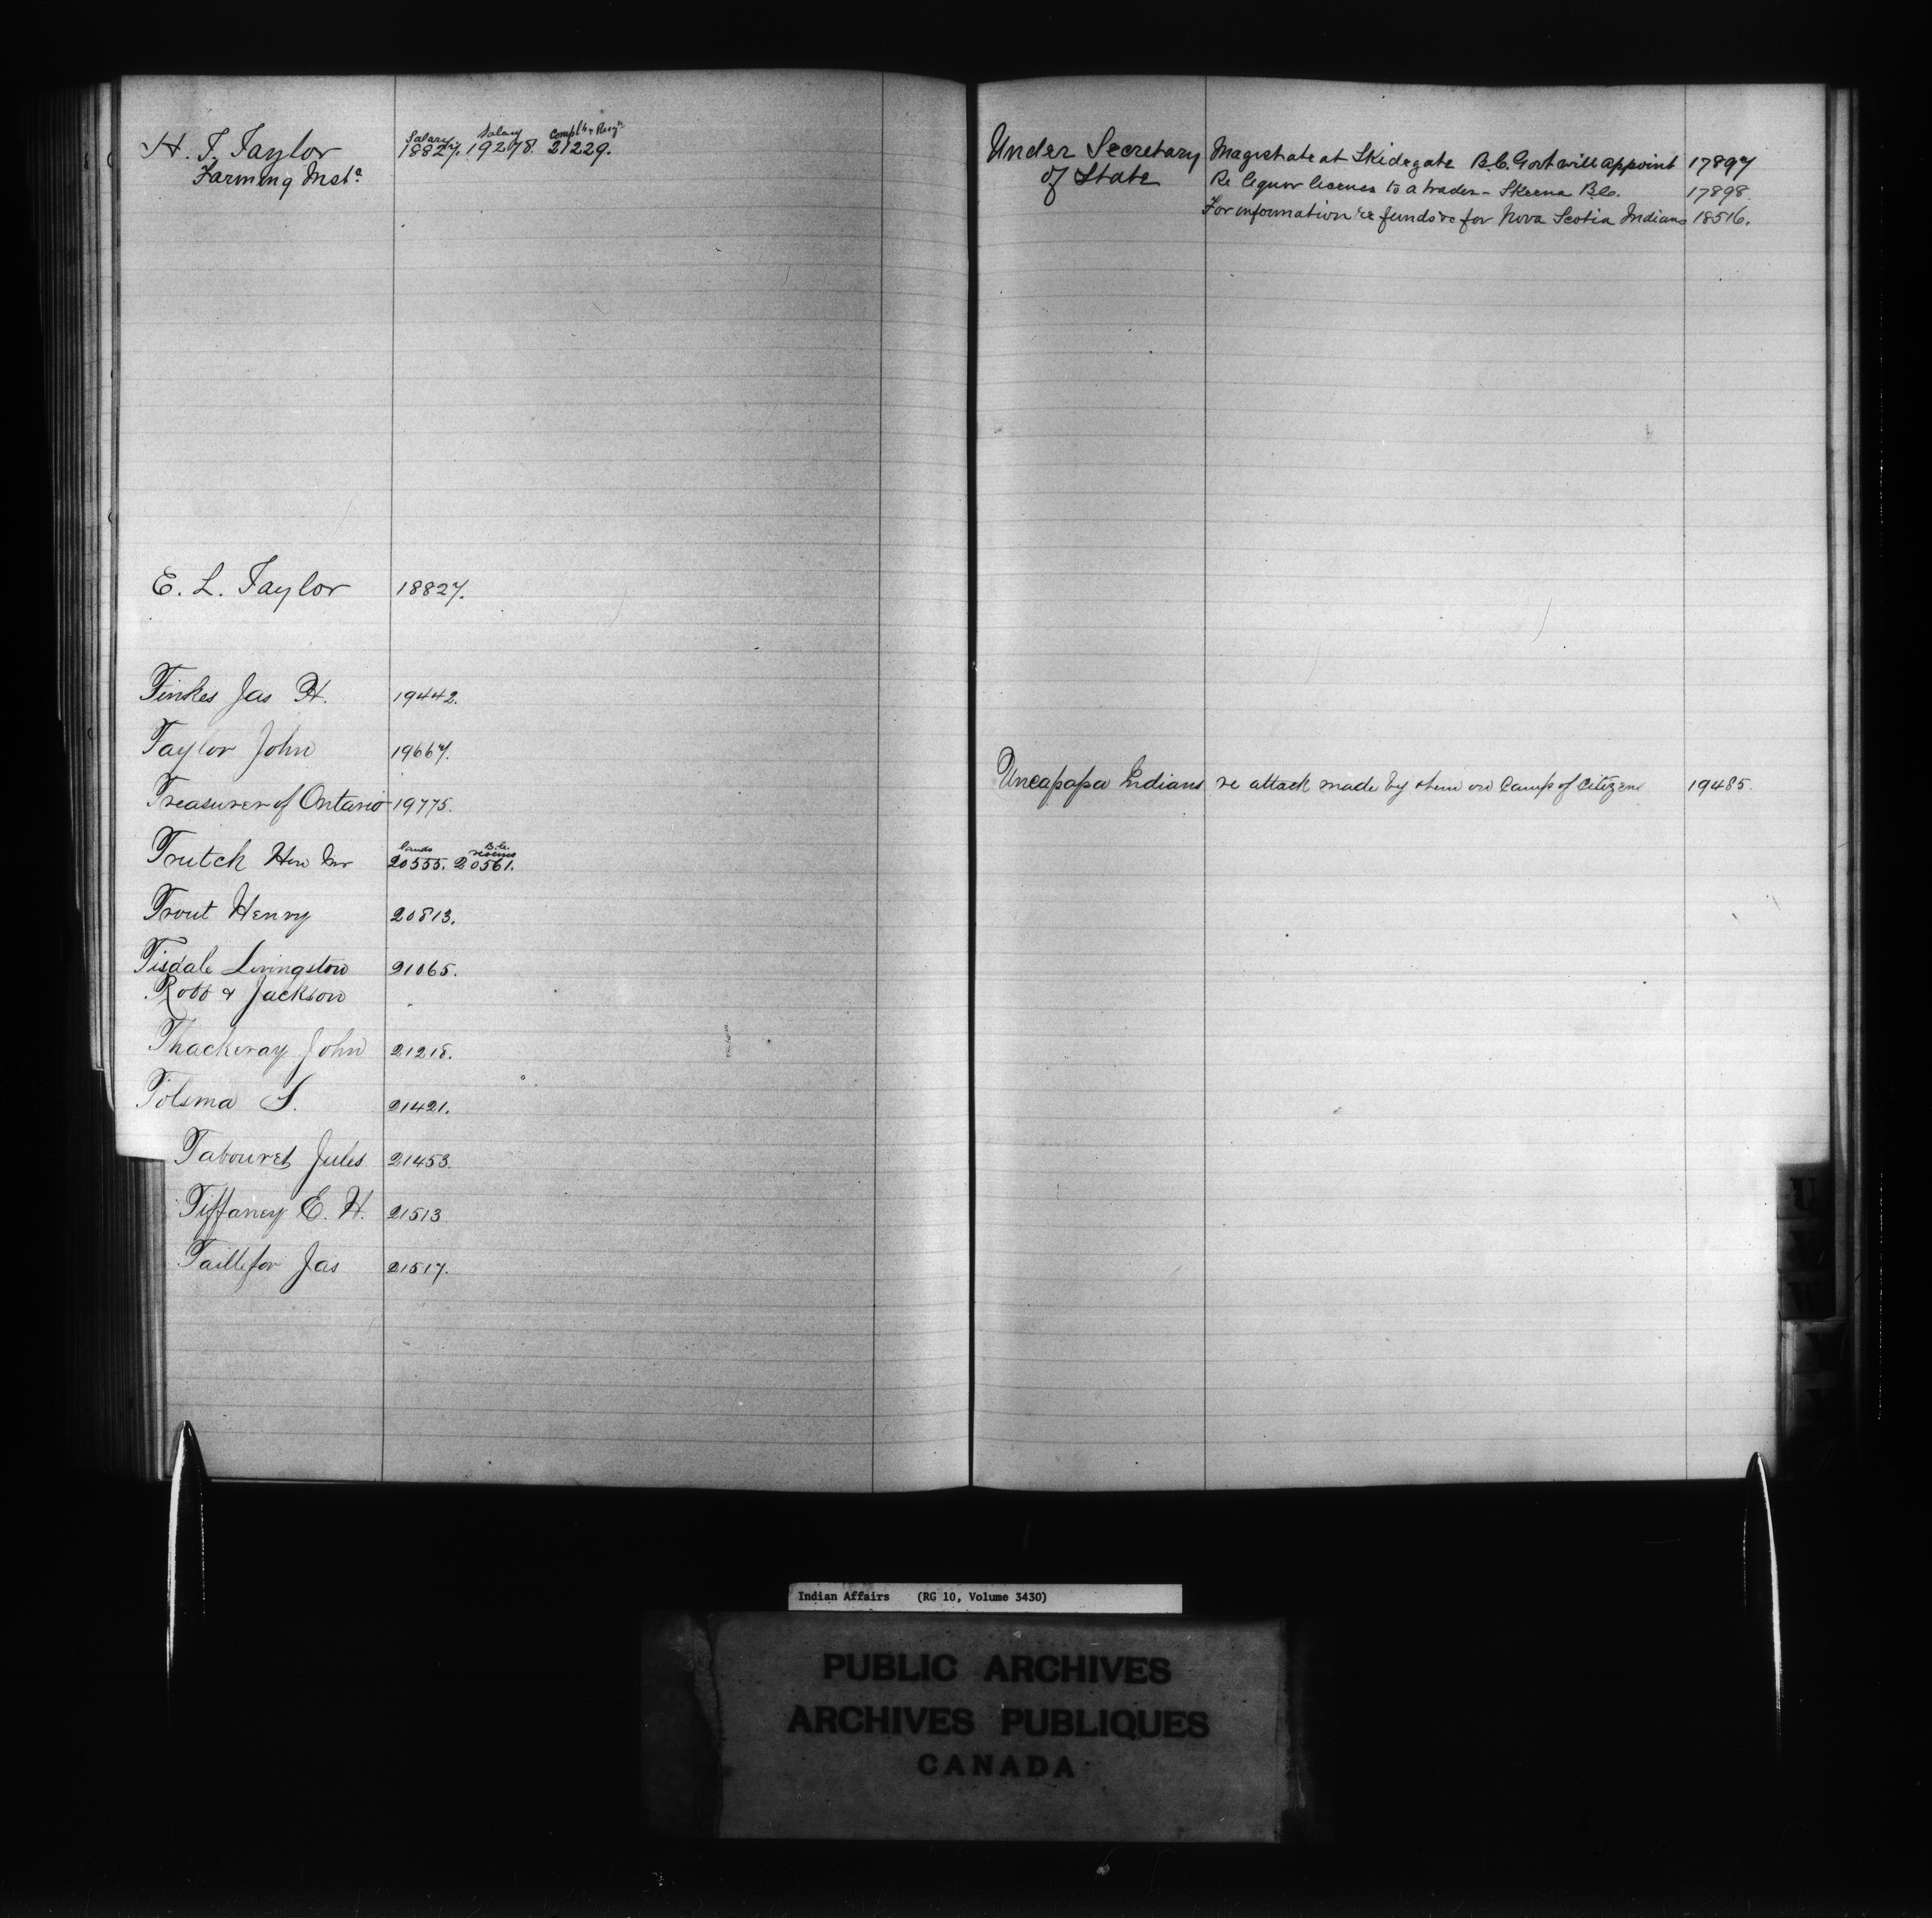 H. T. Taylor
Farming Inst.
Salary Salary
18827. 19278. 21229.
E. L. Taylor 18827.
Jas H. 19442.
Taylor John 19667.
Treasurer of Ontario 19775.
lands B.C.
Trutch Hon Mr 20555. 20561.
Trout Henry 20813.
Tisdale Livingston 21065.
Robb & Jackson
Thackeray John 21218.
Tolsma S. 21421.
Tabouret Jules 21453.
Tiffaney E. H. 21513
Taillefor Jas 21517.
Under Secretary Magistrate at Skidegate B.C. Govt will appoint 17897
of State Re liquor license to a trader - Skeena B.C. 17898
For information re funds &c for Nova Scotia Indians 18516.
Uncapapa Indians re attack made by them on Camp of Citizens 19485.
U
V
W
Indian Affairs (RG 10, Volume 3430)
PUBLIC ARCHIVES
ARCHIVES PUBLIQUES
CANADA